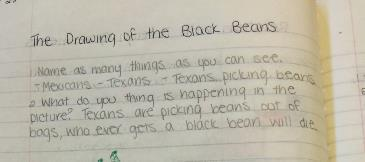 The Drawing of the Black Beans
1. Name as many things as you can see.
- Mexicans - Texans - Texans picking beans
2. What do you thing is happening in the
picture? Texans are picking beans out of
bags, who ever gets a black bean will die